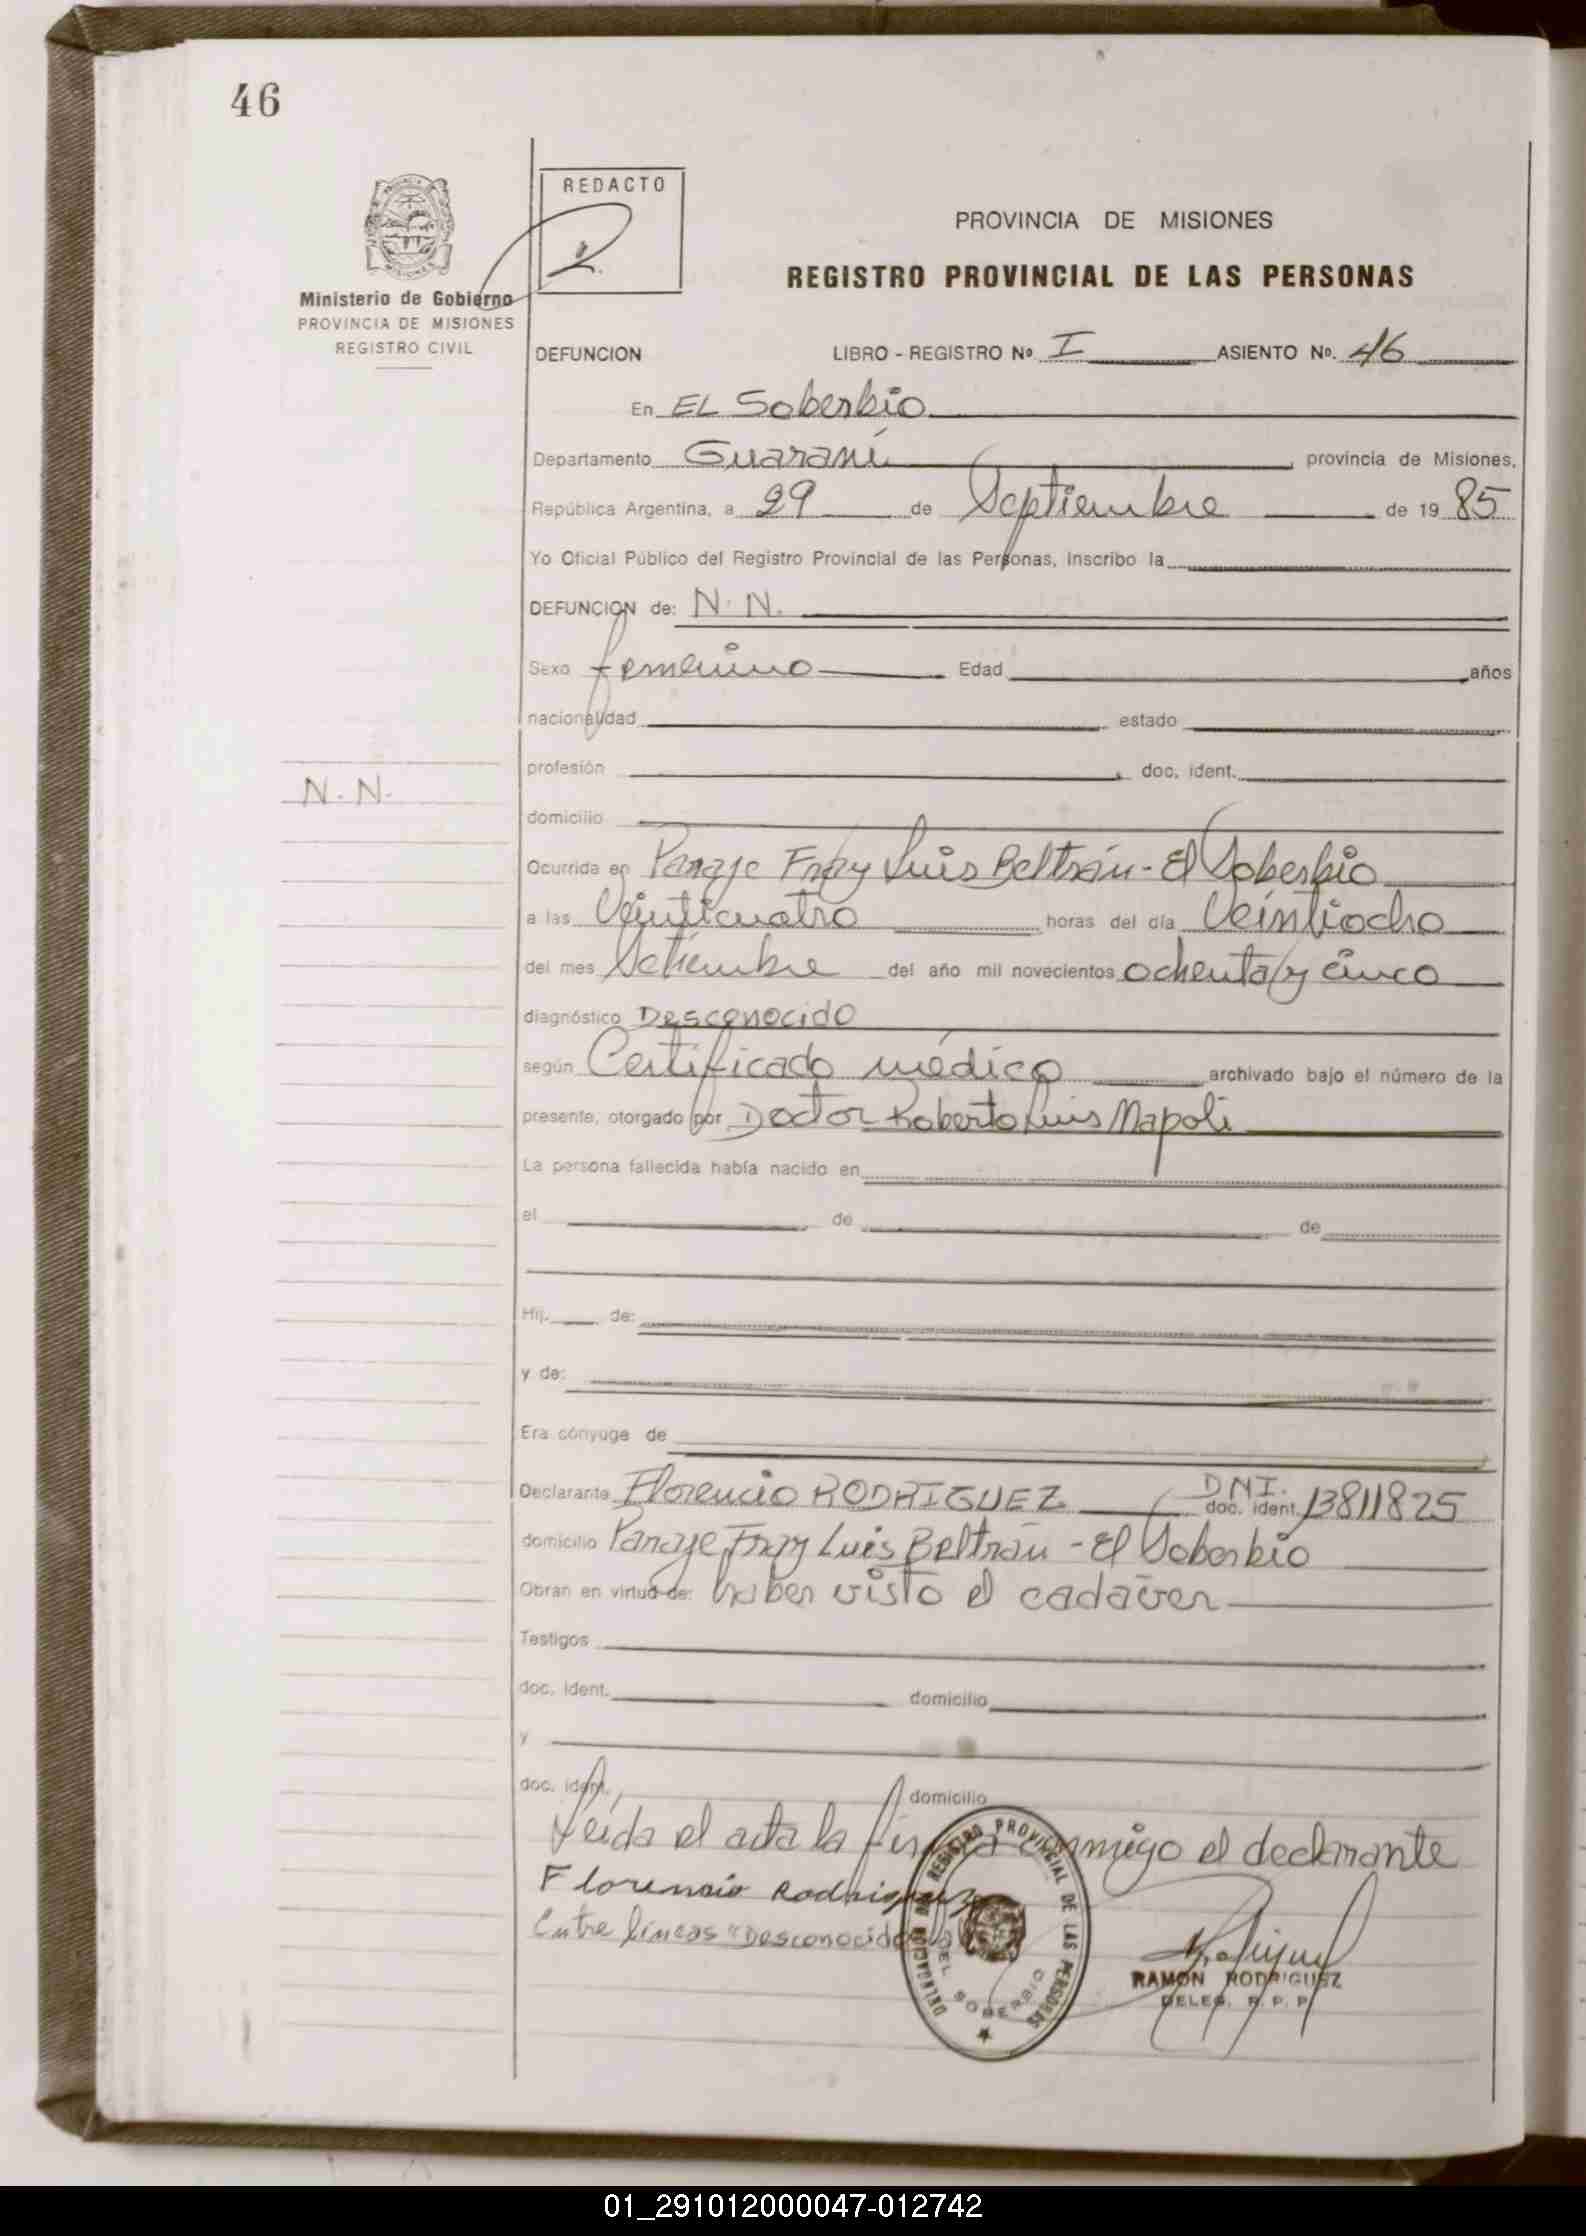 46
REDACTO
PROVINCIA DE MISIONES
REGISTRO PROVINCIAL DE LAS PERSONAS
Ministerio de Gobierno
PROVINCIA DE MISIONES
REGISTRO CIVIL
DEFUNCION LIBRO - REGISTRO Nº I ASIENTO Nº. 46
En EL Soberbio
Departamento Guaraní, provincia de Misiones,
República Argentina, a 29 de Septiembre de 19 85
Yo Oficial Público del Registro Provincial de las Personas, inscribo la
DEFUNCION de: N. N.
Sexo femenino Edad años
nacionalidad estado
profesión, doc. ident.
N. N.
domicilio
Ocurrida en Paraje Fray Luis Beltrán - El Soberbio
a las Veinticuatro horas del día Veintiocho
del mes Setiembre del año mil novecientos ochenta y cinco
diagnóstico Desconocido
según Certificado médico archivado bajo el número de la
presente, otorgado por Doctor Roberto Luis Napoli
La persona fallecida había nacido en
el de de
Hij. de:
y de:
Era cónyuge de
Declarante Florencio RODRIGUEZ D N I. doc. ident. 13811825
domicilio Paraje Fray Luis Beltrán - El Soberbio
Obran en virtud de: haber visto el cadáver
Testigos
doc. ident. domicilio
y
doc. ident. domicilio
Leída el acta la firma conmigo el declarante
Florencio Rodriguez
Entre líneas "Desconocido
DELEGACION DEL REGISTRO PROVINCIAL DE LAS PERSONAS
SOBERBIO
RAMON RODRIGUEZ
DELEG. R. P. P.
01_291012000047-012742